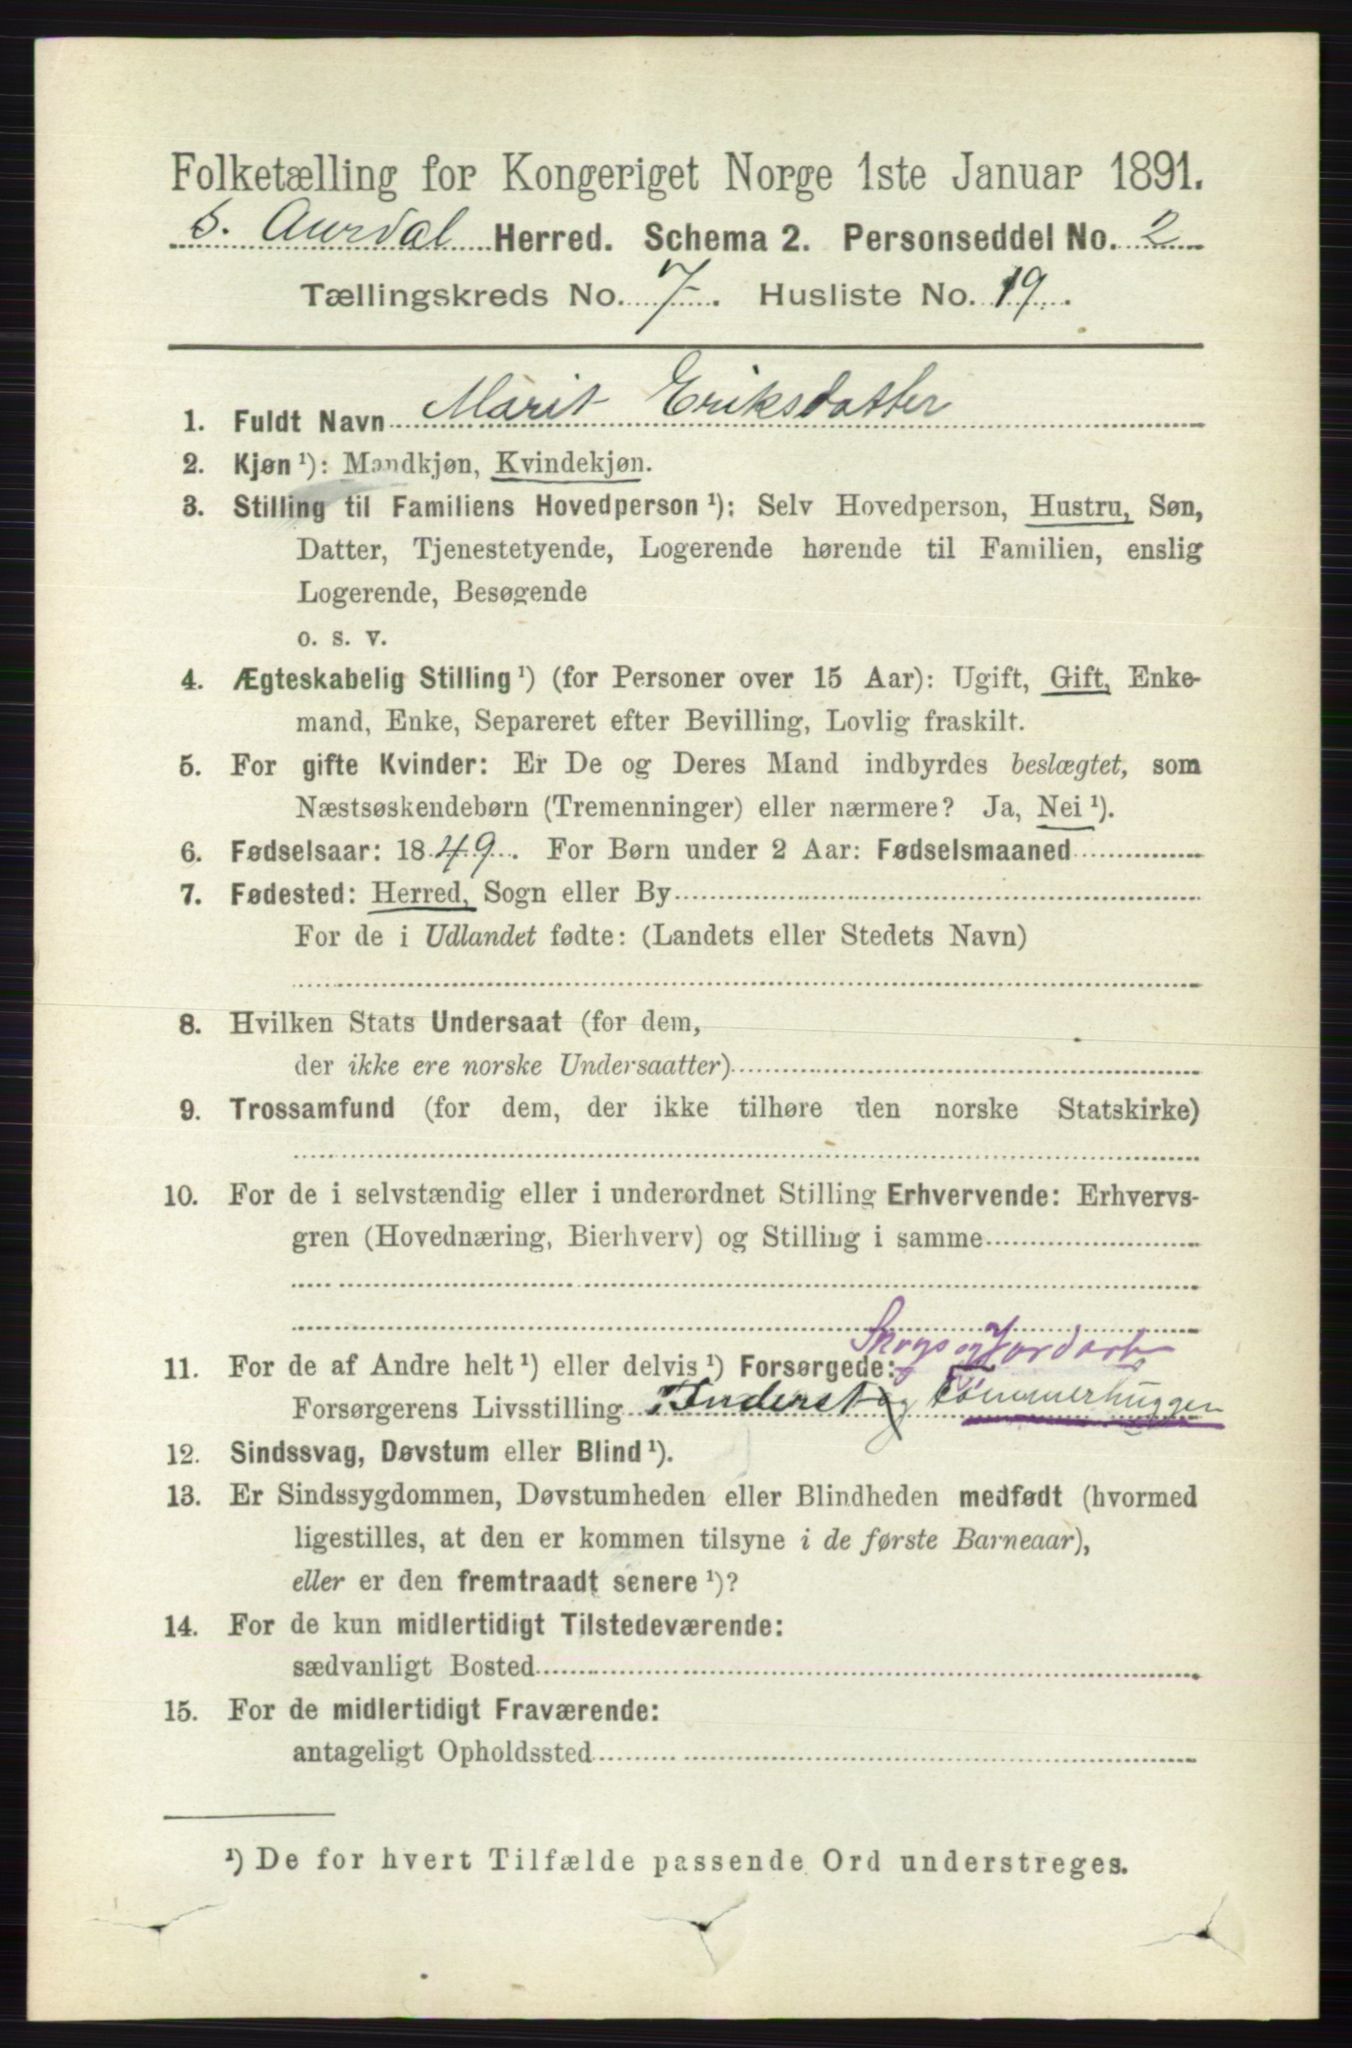 Folketælling for Kongeriget Norge 1ste Januar 1891.
S. Aurdal Herred. Schema 2. Personseddel No. 2
Tællingskreds No. 7. Husliste No. 19.
1. Fuldt Navn Marit Eriksdatter
2. Kjøn ¹): Mandkjøn, Kvindekjøn.
3. Stilling til Familiens Hovedperson ¹): Selv Hovedperson, Hustru, Søn,
Datter, Tjenestetyende, Logerende hørende til Familien, enslig
Logerende, Besøgende
o. s. v.
4. Ægteskabelig Stilling ¹) (for Personer over 15 Aar): Ugift, Gift, Enke-
mand, Enke, Separeret efter Bevilling, Lovlig fraskilt.
5. For gifte Kvinder: Er De og Deres Mand indbyrdes beslægtet, som
Næstsøskendebørn (Tremenninger) eller nærmere? Ja, Nei ¹).
6. Fødselsaar: 1849. For Børn under 2 Aar: Fødselsmaaned
7. Fødested: Herred, Sogn eller By
For de i Udlandet fødte: (Landets eller Stedets Navn)
8. Hvilken Stats Undersaat (for dem,
der ikke ere norske Undersaatter)
9. Trossamfund (for dem, der ikke tilhøre den norske Statskirke)
10. For de i selvstændig eller i underordnet Stilling Erhvervende: Erhvervs-
gren (Hovednæring, Bierhverv) og Stilling i samme
Skogs og Jordarb
11. For de af Andre helt ¹) eller delvis ¹) Forsørgede:
Forsørgerens Livsstilling Inderst og Tømmerhugger
12. Sindssvag, Døvstum eller Blind ¹).
13. Er Sindssygdommen, Døvstumheden eller Blindheden medfødt (hvormed
ligestilles, at den er kommen tilsyne i de første Barneaar),
eller er den fremtraadt senere ¹)?
14. For de kun midlertidigt Tilstedeværende:
sædvanligt Bosted
15. For de midlertidigt Fraværende:
antageligt Opholdssted
¹) De for hvert Tilfælde passende Ord understreges.